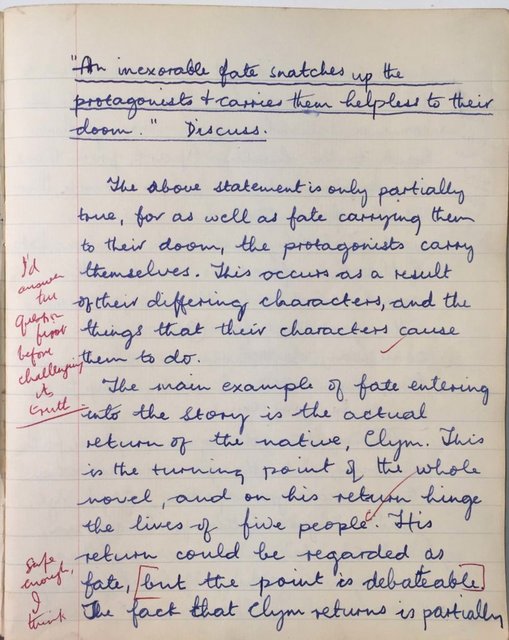 "An inexorable fate snatches up the
protagonists & carries them helpless to their
doom." Discuss.
The above statement is only partially
true, for as well as fate carrying them
to their doom, the protagonists carry
themselves. This occurs as a result
of their differing characters, and the
things that their characters cause
them to do.
I'd
answer
the
question
first
before
challenging
its
truth
The main example of fate entering
into the story is the actual
return of the native, Clym. This
is the turning point of the whole
novel, and on his return hinge
the lives of five people. His
return could be regarded as
fate, [but the point is debateable.]
The fact that Clym returns is partially
safe
enough,
I
think